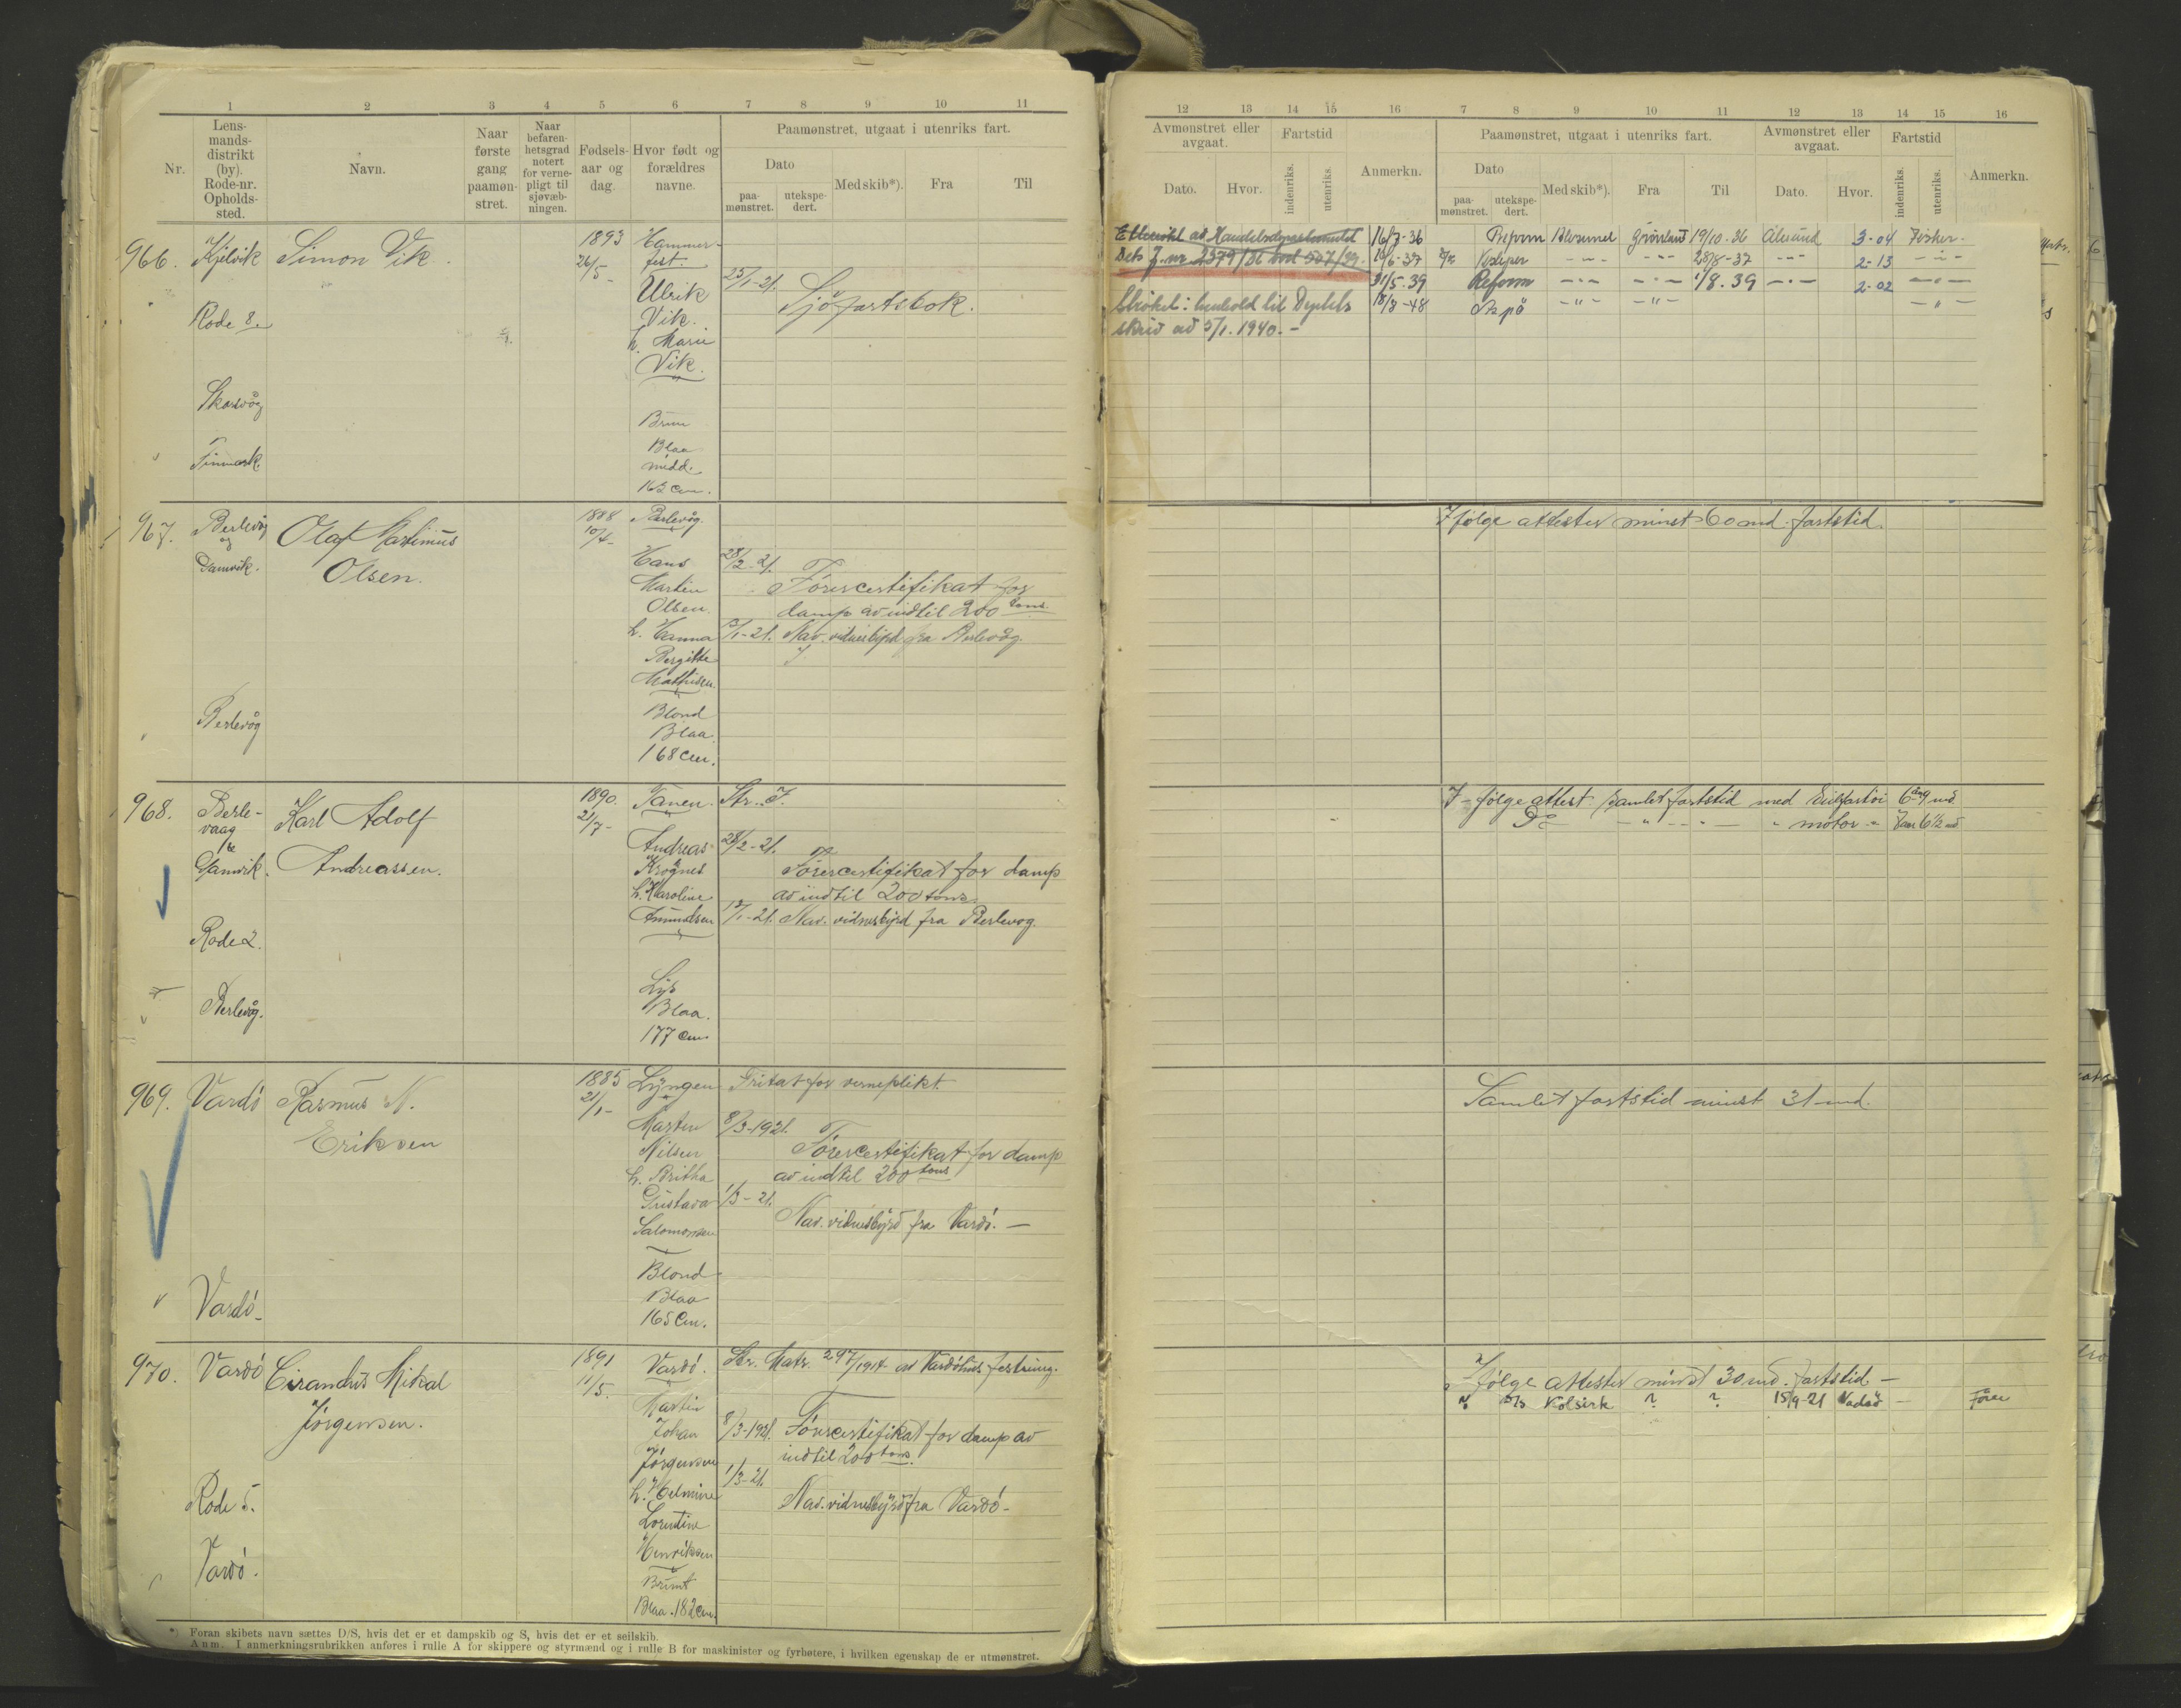 1 2 3 4 5 6 7 8 9 10 11
Nr.
Lens-
mands-
distrikt
(by).
Rode-nr.
Opholds-
sted.
Navn.
Naar
første
gang
paamøn-
stret.
Naar
befaren-
hetsgrad
notert
for verne-
pligt til
sjøvæb-
ningen.
Fødsels-
aar og
dag.
Hvor født og
forældres
navne.
Paamønstret, utgaat i utenriks fart.
Dato
paa-
mønstret.
utekspe-
dert.
Med skib*).
Fra
Til
966.
Kjelvik
Rode 8.
Skarsvåg
Finmark.
Simon Vik.
1893
26/5-
Hammer-
fest.
Ulrik
Vik.
h. Marie
Vik.
Brun
Blaa
midd.
162 cm.
25/1-21.
Sjöfartsbok.
967.
Berlevåg
og
Gamvik.
Berlevåg
Olaf Martinus
Olsen.
1888
10/4-
Berlevåg.
Hans
Martin
Olsen.
h. Hanna
Bergitte
Mathisen
Blond
Blaa.
168 cm.
28/2-21.
Förercertifikat for
damp av indtil 200 tons.
13/1-21. Nav. vidnesbyrd fra Berlevåg.
968.
Berle-
vaag
Gamvik.
Rode 2.
Berlevåg.
Karl Adolf
Andreassen.
1890.
21/7-
Tanen.
Andreas
Krögnes
h. Karoline
Amundsen
Lys
Blaa.
177 cm
28/2-21.
Förercertifikat for damp
av indtil 200 tons.
13/1-21. Nav. vidnesbyrd fra Berlevog.
969.
Vardö
Vardö
Rasmus N.
Eriksen
1885
21/1-
Lyngen
Martin
Nilsen
h. Britha
Gustava
Salomonsen
Blond
Blaa
165 cm.
Fritat for verneplikt.
8/3-1921.
Förercertifikat for damp
av indtil 200 tons
1/3-21.
Nav. vidnesbyrd fra Vardö. —
970.
Vardö
Rode 5.
Vardö.
Mikal
Jörgensen.
1891
1/5.
Vardö.
Martin
Johan
Jörgensen
h. Helmine
Lorentine
Henriksen
Brunt
Blaa. 182 cm.
Str. Matr. 297/1914 ved Vardöhus festning.
8/3-1921. Förercertifikat for damp av
indtil 200 tons.
1/3-21.
Nav. vidnesbyrd fra Vardö-
*) Foran skibets navn sættes D/S, hvis det er et dampskib og S, hvis det er et seilskib.
Anm. I anmerkningsrubrikken anføres i rulle A for skippere og styrmænd og i rulle B for maskinister og fyrbøtere, i hvilken egenskap de er utmønstret.
12 13 14 15 16 7 8 9 10 11 12 13 14 15 16
Avmønstret eller
avgaat.
Dato.
Hvor.
Fartstid
indenriks.
utenriks.
Anmerkn.
Paamønstret, utgaat i utenriks fart.
Dato
paa-
mønstret.
utekspe-
dert.
Med skib*).
Fra
Til
Avmønstret eller
avgaat.
Dato.
Hvor.
Fartstid
indenriks.
utenriks.
Anmerkn.
16/7-36 Reform Grönland 19/10-36 Ålesund 3-04 Fisker.
28/8-37 2-13
31/5-39 Reform 1/8.39 2-02
18/3-48
skriv av 5/1.1940.-
I følge attester minst 60 md. fartstid.
I følge attest. samlet fartstid med
motor
Samlet fartstid minst 31 md.
I følge attester mindst 30 md. fartstid —
D/S Kolsirk ? ? 15/9-21 Vadsö — Förer